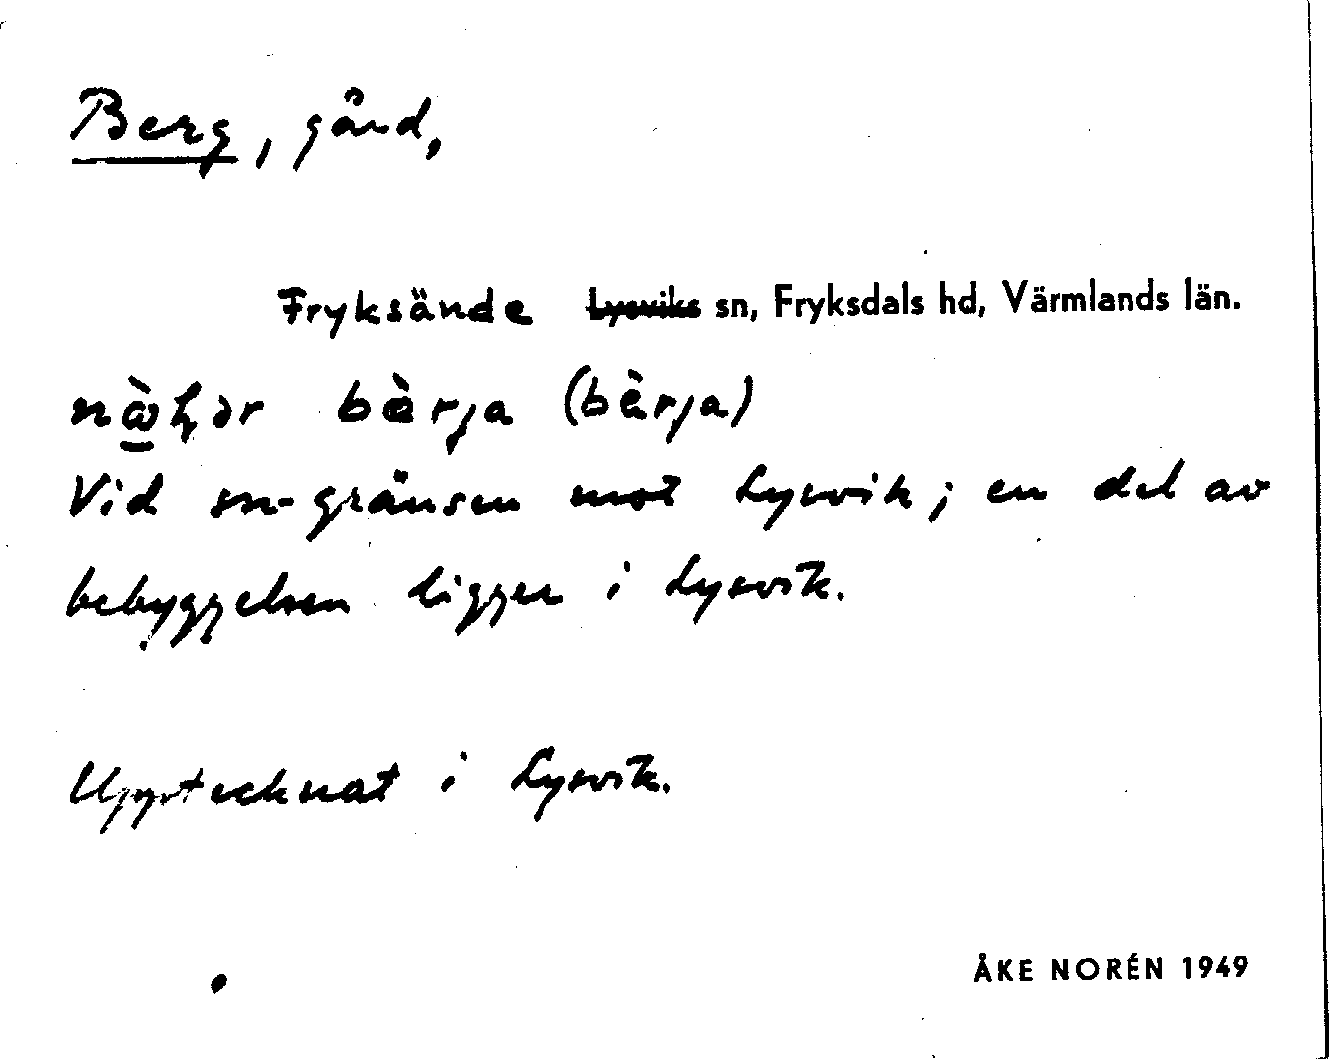 Berg, gård,
Fryksände Lysviks sn, Fryksdals hd, Värmlands län.
bèrja (bèrja)
Vid sn-gränsen mot Lysvik; en del av
bebyggelsen ligger i Lysvik.
Upptecknat i Lysvik.
ÅKE NORÉN 1949